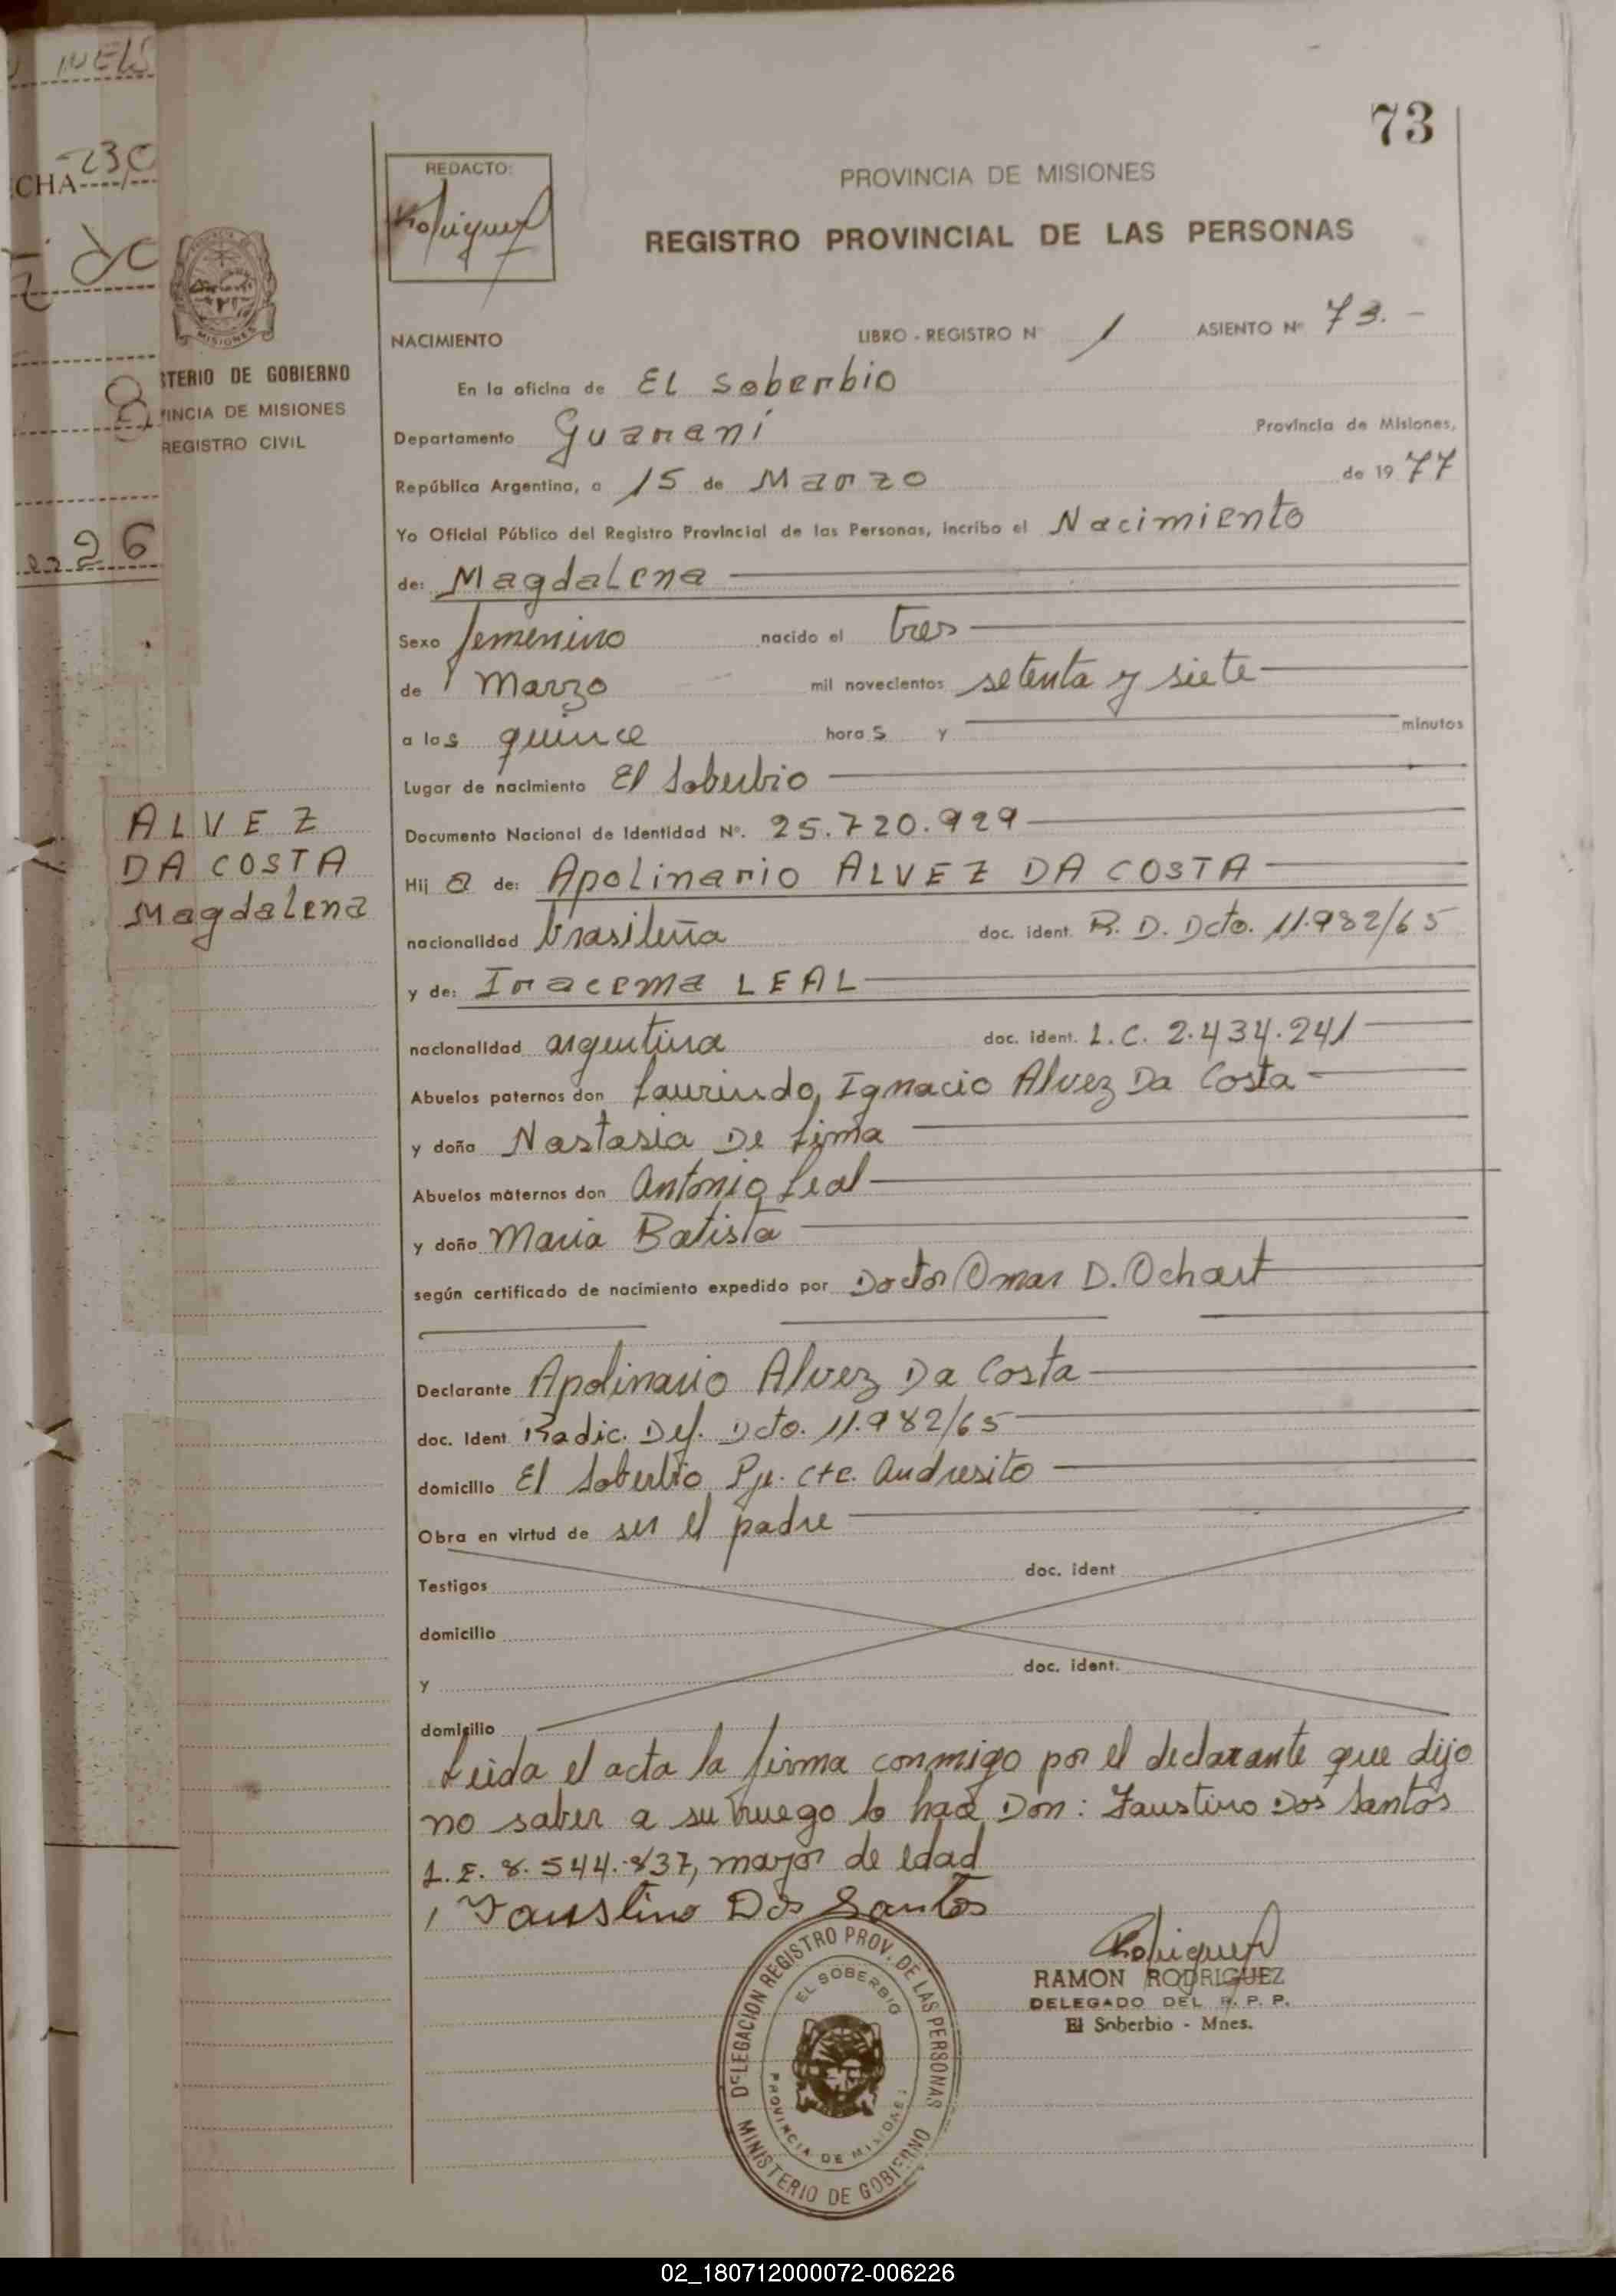 73
REDACTO:
PROVINCIA DE MISIONES
REGISTRO PROVINCIAL DE LAS PERSONAS
MISIONES
STERIO DE GOBIERNO
VINCIA DE MISIONES
REGISTRO CIVIL
CHA 230
26
NACIMIENTO LIBRO - REGISTRO N 1 ASIENTO Nº 73. -
En la oficina de EL Soberbio
Departamento Guaraní Provincia de Misiones,
República Argentina, a 15 de Marzo de 19 77
Yo Oficial Público del Registro Provincial de las Personas, incribo el Nacimiento
de: Magdalena
Sexo femenino nacido el tres
de Marzo mil novecientos setenta y siete
a las quince hora s y minutos
Lugar de nacimiento El Soberbio
Documento Nacional de Identidad Nº. 25.720.929
ALVEZ
DA COSTA
Magdalena
Hij a de: Apolinario ALVEZ DA COSTA
nacionalidad brasileña doc. ident. R. D. Dcto. 11.982/65
y de: Iracema LEAL
nacionalidad argentina doc. ident. L.C. 2.434.241
Abuelos paternos don Laurindo Ignacio Alvez Da Costa
y doña Nastasia De Lima
Abuelos maternos don Antonio Leal
y doña Maria Batista
según certificado de nacimiento expedido por Doctor Omar D. Ochart
Declarante Apolinario Alvez Da Costa
doc. Ident Radic. Def. Dcto. 11.982/65
domicilio El Soberbio Pje. Cte. Andresito
Obra en virtud de ser el padre
Testigos doc. ident
domicilio
y doc. ident.
domicilio
Leida el acta la firma conmigo por el declarante que dijo
no saber a su ruego lo hace Don: Faustino Dos Santos
L.E. 8.544.837, mayor de edad
Faustino Dos Santos
RAMON RODRIGUEZ
DELEGADO DEL R. P. P.
El Soberbio - Mnes.
DELEGACION REGISTRO PROV. DE LAS PERSONAS
EL SOBERBIO
PROVINCIA DE MISIONES
MINISTERIO DE GOBIERNO
02_180712000072-006226